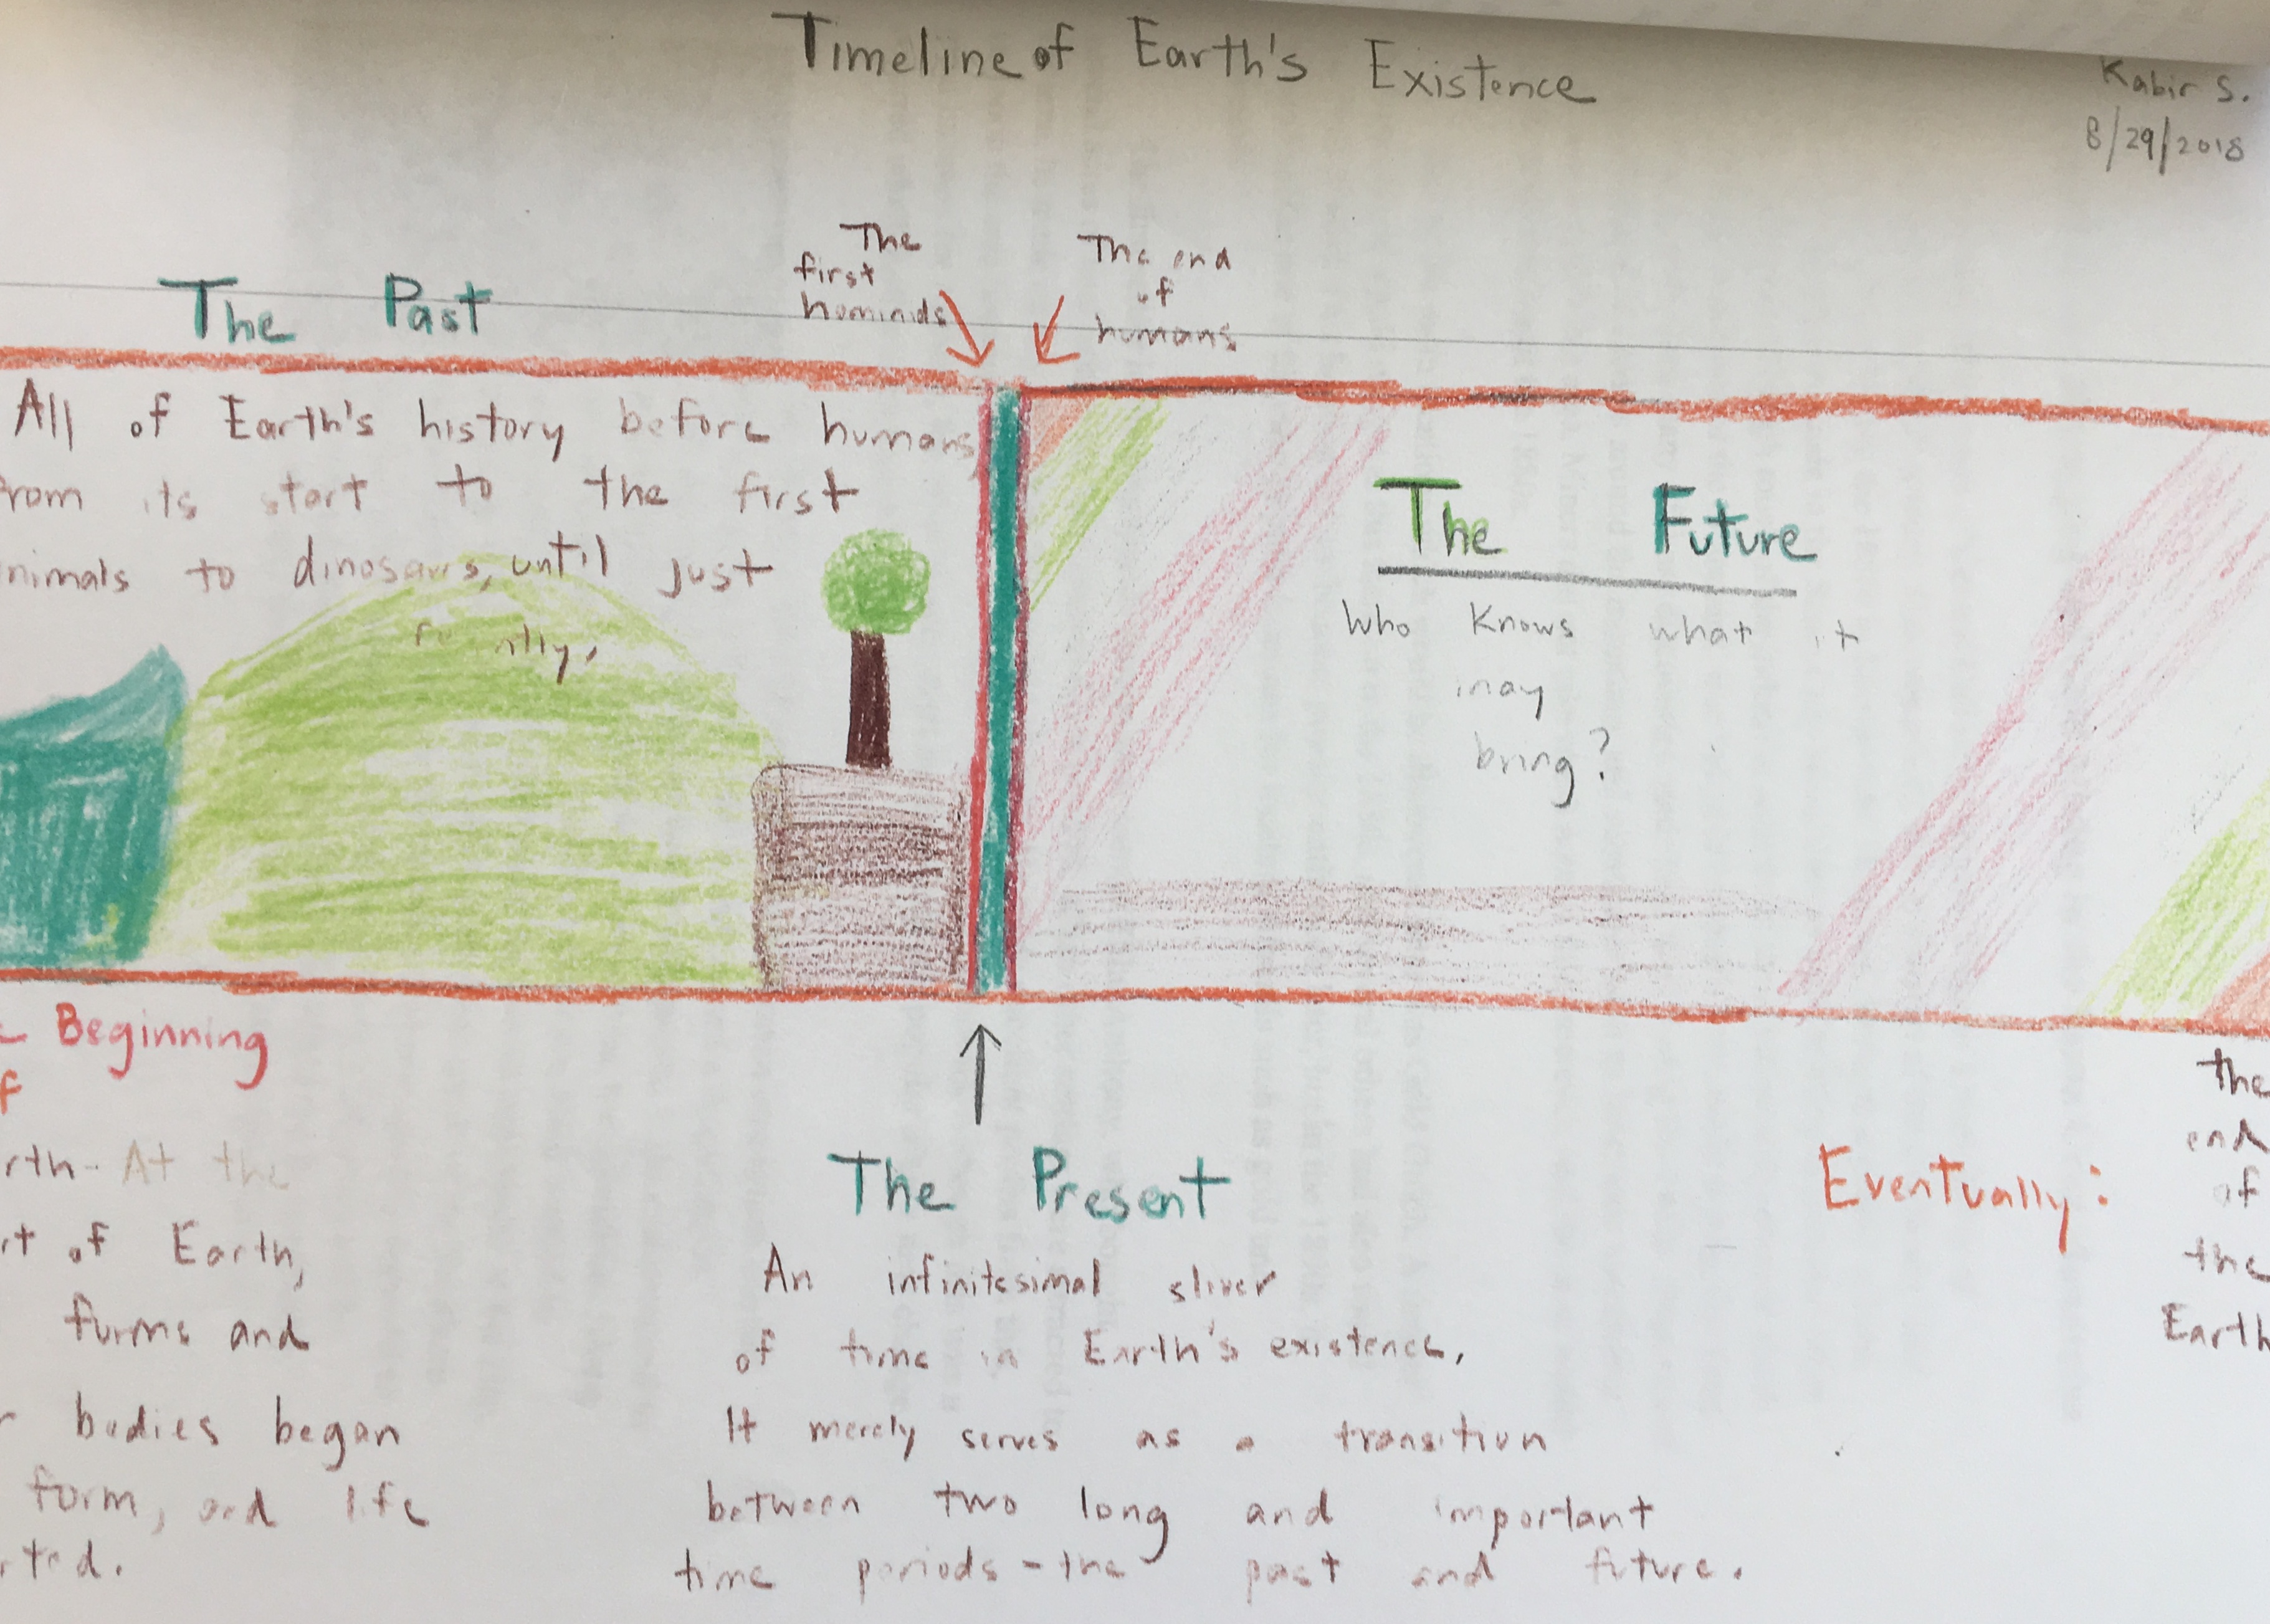 Timeline of Earth's Existence
Kabir S.
8/29/2018
The Past
The
first
hominids
The end
of
humans
All of Earth's history before humans,
from its start to the first
nimals to dinosaurs, until just
The Future
Who knows what it
may
bring?
Beginning
f
rth - At the
rt of Earth,
forms and
r bodies began
form, and life
rted.
The Present
An infinitesimal sliver
of time in Earth's existence.
It merely serves as a transition
between two long and important
time periods - the past and future.
Eventually:
the
end
of
the
Earth